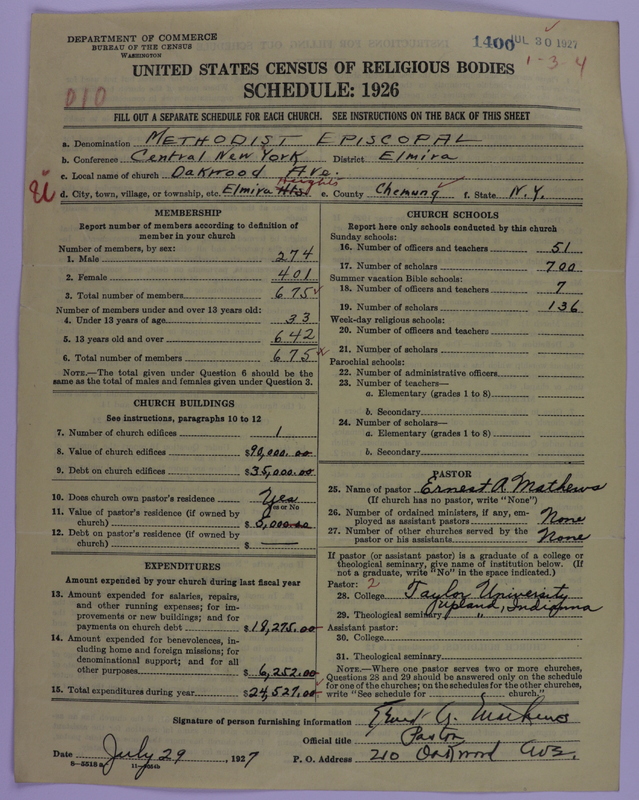 DEPARTMENT OF COMMERCE
BUREAU OF THE CENSUS
WASHINGTON
1400 JUL 30 1927
1-3 4
UNITED STATES CENSUS OF RELIGIOUS BODIES
SCHEDULE: 1926
010
FILL OUT A SEPARATE SCHEDULE FOR EACH CHURCH. SEE INSTRUCTIONS ON THE BACK OF THIS SHEET
a. Denomination METHODIST EPISCOPAL
b. Conference Central New York District Elmira
c. Local name of church Oakwood Ave.
d. City, town, village, or township, etc. Elmira Hts. Heights e. County Chemung f. State N.Y.
MEMBERSHIP
Report number of members according to definition of
member in your church
Number of members, by sex:
1. Male 274
2. Female 401
3. Total number of members 675
Number of members under and over 13 years old:
4. Under 13 years of age 33
5. 13 years old and over 642
6. Total number of members 675
NOTE.—The total given under Question 6 should be
same as the total of males and females given under Question 3.
CHURCH BUILDINGS
See instructions, paragraphs 10 to 12
7. Number of church edifices 1
8. Value of church edifices $90,000.00
9. Debt on church edifices $35,000.00
10. Does church own pastor's residence Yes
Yes or No
11. Value of pastor's residence (if owned by
church) $5,000.00
12. Debt on pastor's residence (if owned by
church) $ —
EXPENDITURES
Amount expended by your church during last fiscal year
13. Amount expended for salaries, repairs,
and other running expenses; for im-
provements or new buildings; and for
payments on church debt $18,275.00
14. Amount expended for benevolences, in-
cluding home and foreign missions; for
denominational support; and for all
other purposes $6,252.00
15. Total expenditures during year $24,527.00
CHURCH SCHOOLS
Report here only schools conducted by this church
Sunday schools:
16. Number of officers and teachers 51
17. Number of scholars 700
Summer vacation Bible schools:
18. Number of officers and teachers 7
19. Number of scholars 136
Week-day religious schools:
20. Number of officers and teachers
21. Number of scholars
Parochial schools:
22. Number of administrative officers
23. Number of teachers—
a. Elementary (grades 1 to 8)
b. Secondary
24. Number of scholars—
a. Elementary (grades 1 to 8)
b. Secondary
PASTOR
25. Name of pastor Ernest A Mathews
(If church has no pastor, write "None")
26. Number of ordained ministers, if any, em-
ployed as assistant pastors None
27. Number of other churches served by the
pastor or his assistants None
If pastor (or assistant pastor) is a graduate of a college or
theological seminary, give name of institution below. (If
not a graduate, write "No" in the space indicated.)
Pastor: 2
28. College Taylor University
Upland, Indiana
29. Theological seminary "
Assistant pastor:
30. College
31. Theological seminary
NOTE.—Where one pastor serves two or more churches,
Questions 28 and 29 should be answered only on the schedule
for one of the churches; on the schedules for the other churches,
write "See schedule for church."
Signature of person furnishing information Ernest A. Mathews
Official title Pastor
Date July 29, 1927 P. O. Address 210 Oakwood Ave.
8-5518a